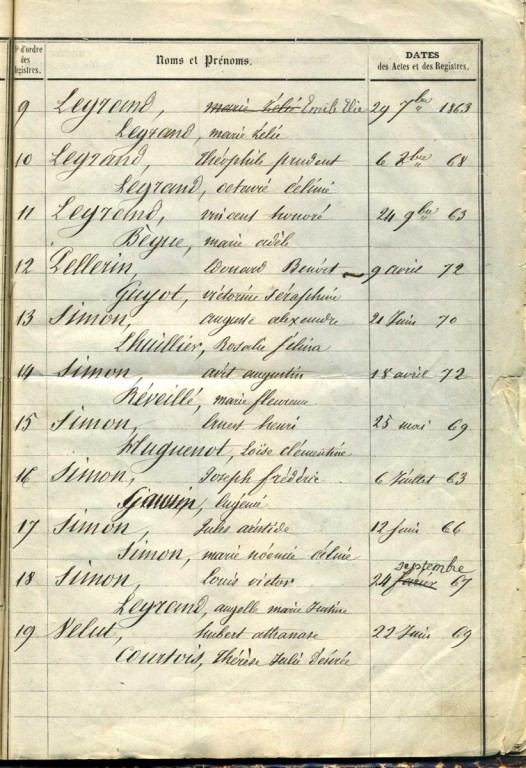 Nos d'ordre des Registres. Noms et Prénoms. DATES des Actes et des Registres.
9 Legrand, marie Zélie Emile Elie 29 7bre 1863
Legrand, marie Zélie
10 Legrand, théophile prudent 6 Xbre 68
Legrand, octavie Céline
11 Legrand, vincent honoré 24 9bre 63
Bègue, marie adèle
12 Pellerin, Edouard Benoit 9 avril 72
Guyot, victorine Séraphine
13 Simon, auguste alexandre 21 Juin 70
Lhuillier, Rosalie félina
14 Simon, avit augustin 18 avril 72
Réveillé, marie fleureuse
15 Simon, Ernest henri 25 mai 69
Huguenot, Loïse clémentine
16 Simon, Joseph frédéric 6 Juillet 63
Eugénie
17 Simon, Jules aristide 12 Juin 66
Simon, marie noémie Céline
18 Simon, louis victor 24 septembre 67
Legrand, angelle marie Justine
19 Velut, hubert athanase 22 Juin 69
Courtois, thérèse Julie Désirée